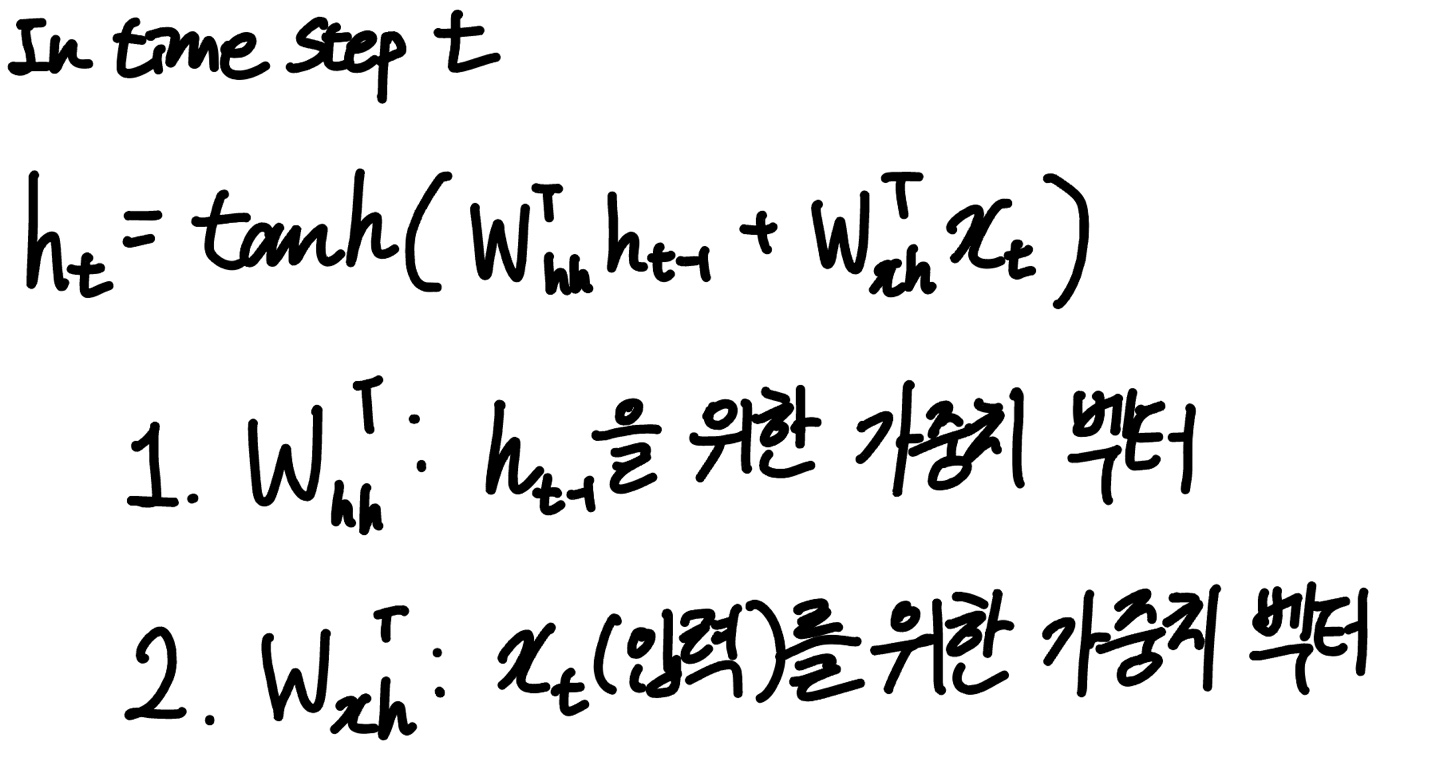 In time step t
hₜ = tanh( Wₕₕᵀ hₜ₋₁ + Wₓₕᵀ xₜ )
1. Wₕₕᵀ : hₜ₋₁을 위한 가중치 벡터
2. Wₓₕᵀ : xₜ(입력)를 위한 가중치 벡터